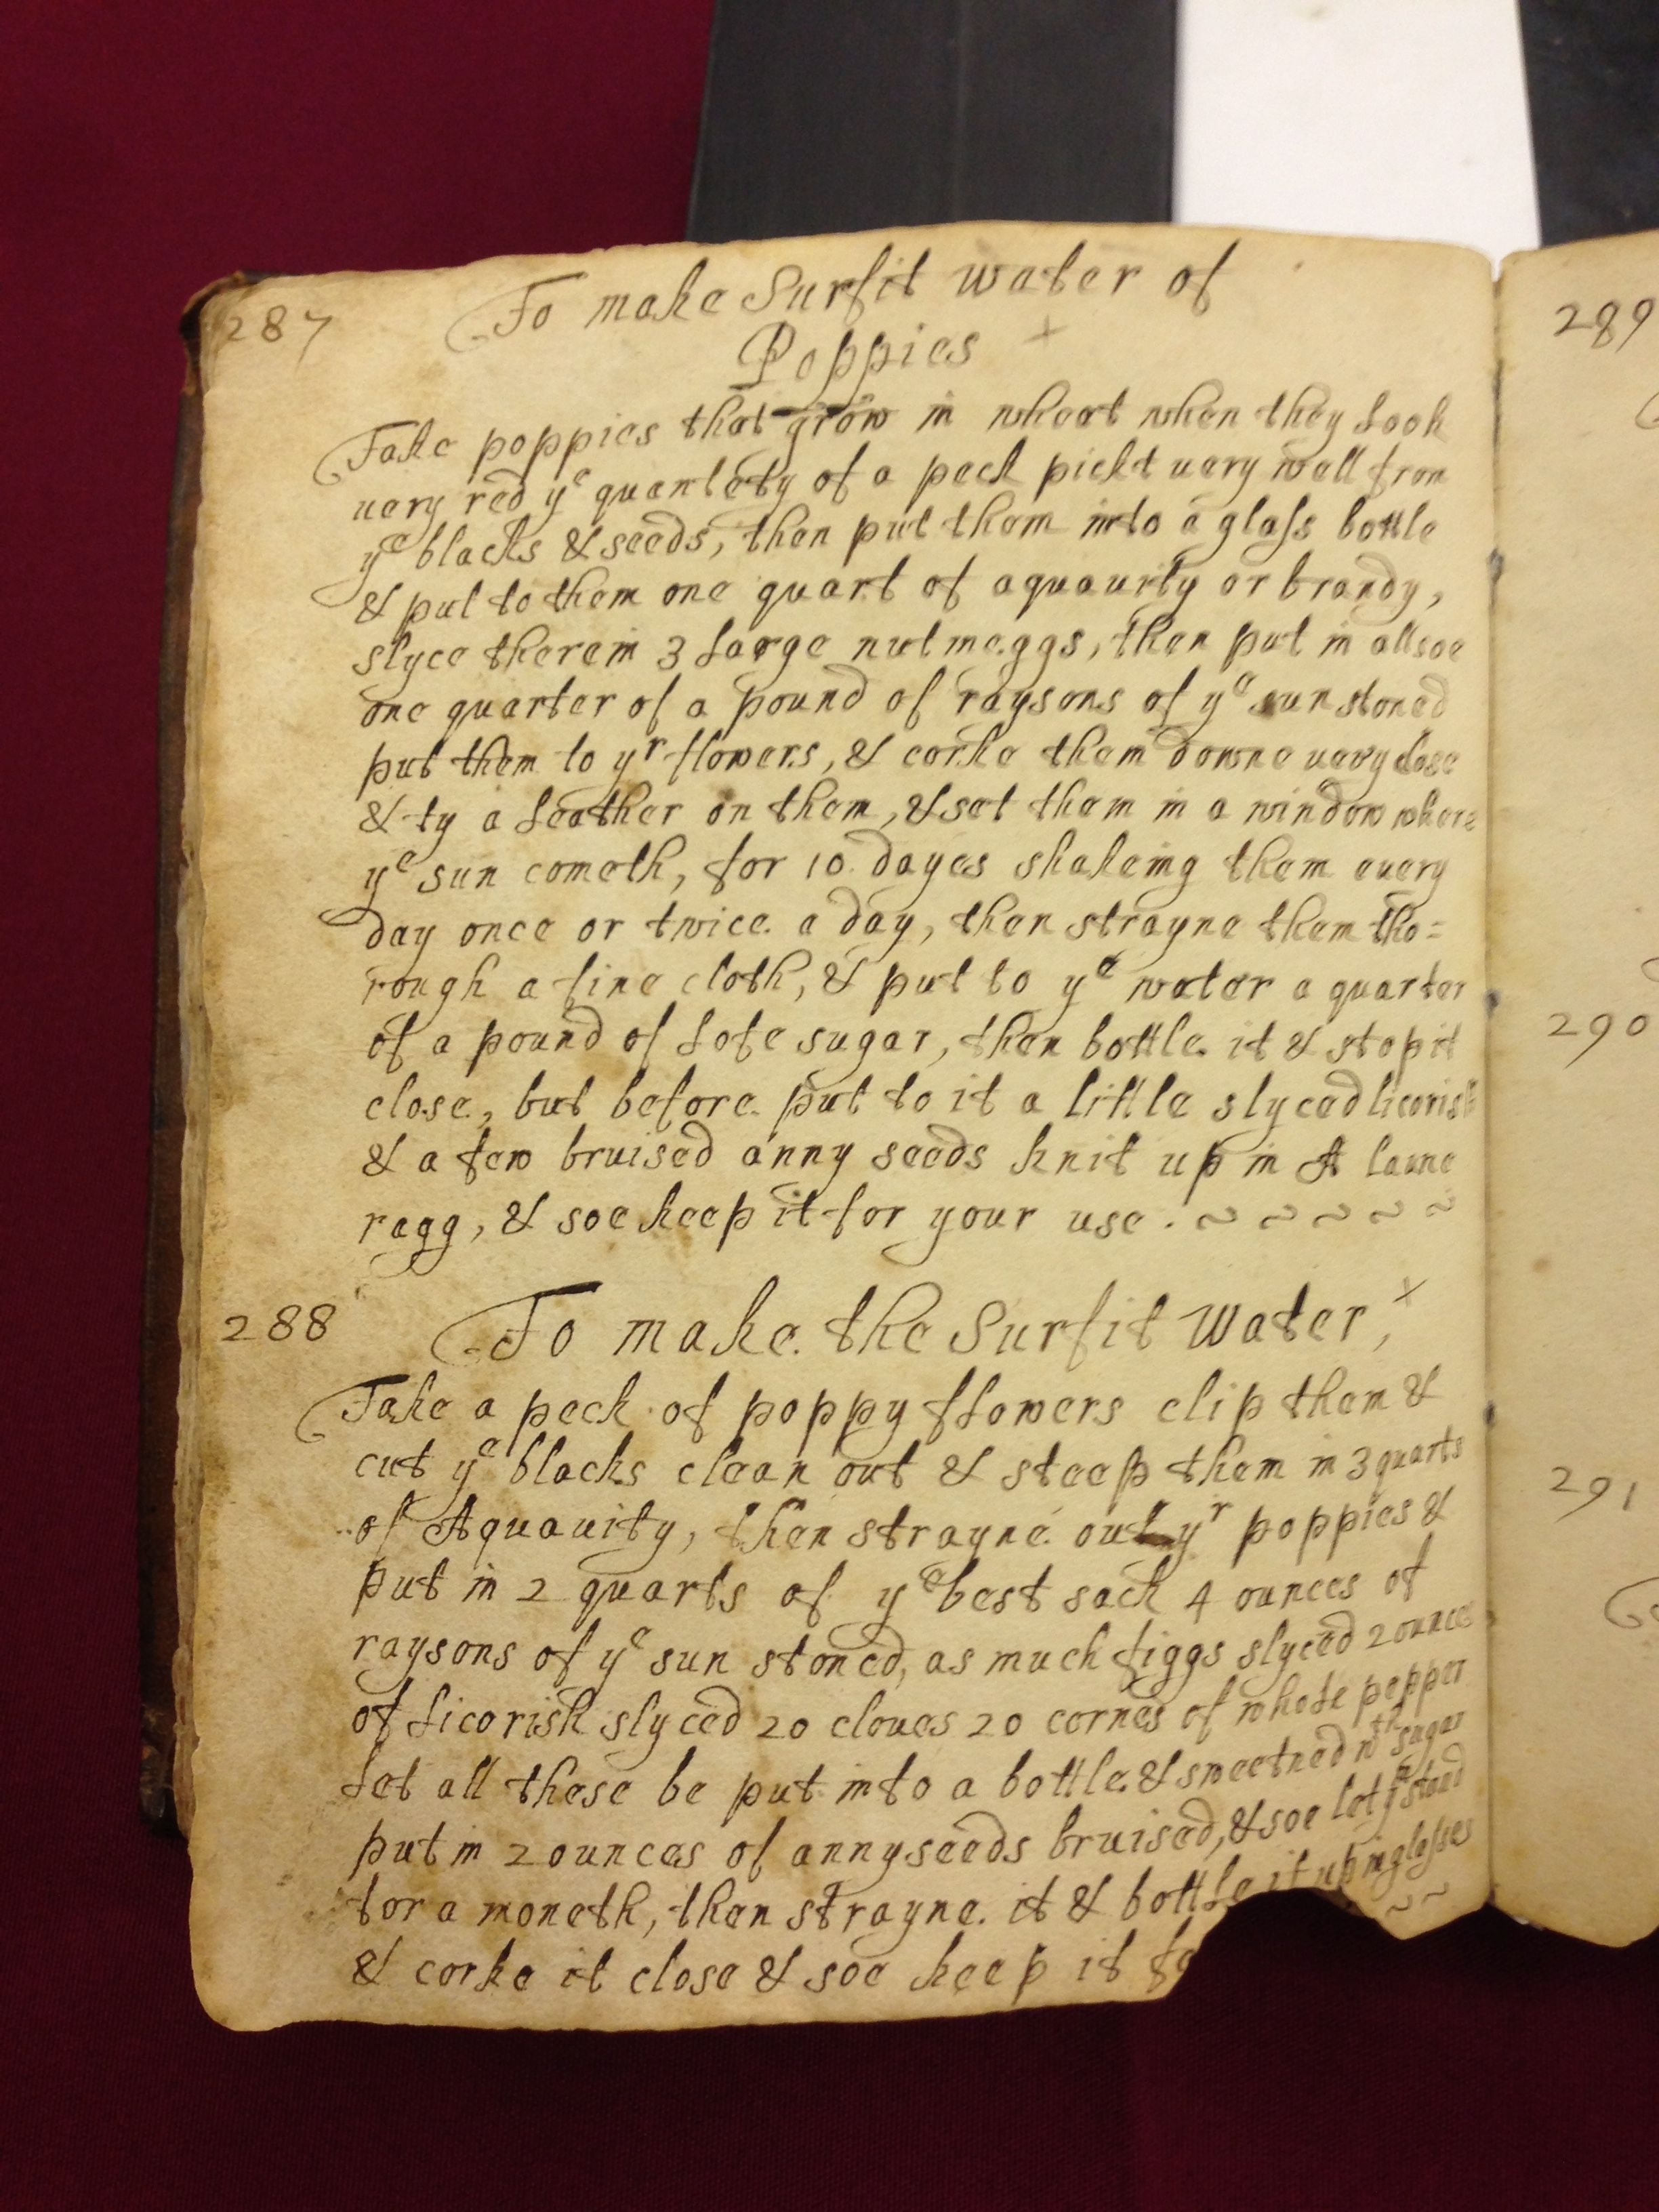 287 To make Surfit water of
Poppies +
Take poppies that grow in wheat when they look
uery red yᵉ quantety of a peck pickt uery well from
yᵉ blacks & seeds, then put them into a glass bottle
& put to them one quart of aquauity or brandy,
slyce therein 3 large nutmeggs, then put in allsoe
one quarter of a pound of raysons of yᵉ sun stoned
put them to yʳ flowers, & corke them downe uery close
& ty a leather on them, & set them in a window where
yᵉ sun cometh, for 10 dayes shakeing them euery
day once or twice a day, then strayne them tho=
rough a fine cloth, & put to yᵉ water a quarter
of a pound of lofe sugar, then bottle it & stop it
close, but before put to it a little slyced licorish
& a few bruised anny seeds knit up in A laune
ragg, & soe keep it for your use . ~ ~ ~ ~ ~
288 To make the Surfit Water, +
Take a peck of poppy flowers clip them &
cut yᵉ blacks clean out & steep them in 3 quarts
of Aquauity, then strayne out yʳ poppies &
put in 2 quarts of yᵉ best sack 4 ounces of
raysons of yᵉ sun stoned, as much figgs slyced 2 ounces
of licorish slyced 20 cloues 20 cornes of whole pepper
let all these be put into a bottle & sweetned wᵗʰ sugar
put in 2 ounces of annyseeds bruised, & soe let yᵐ stand
for a moneth, then strayne it & bottle it up in glasses
& corke it close & soe keep it ~ ~
289
290
291